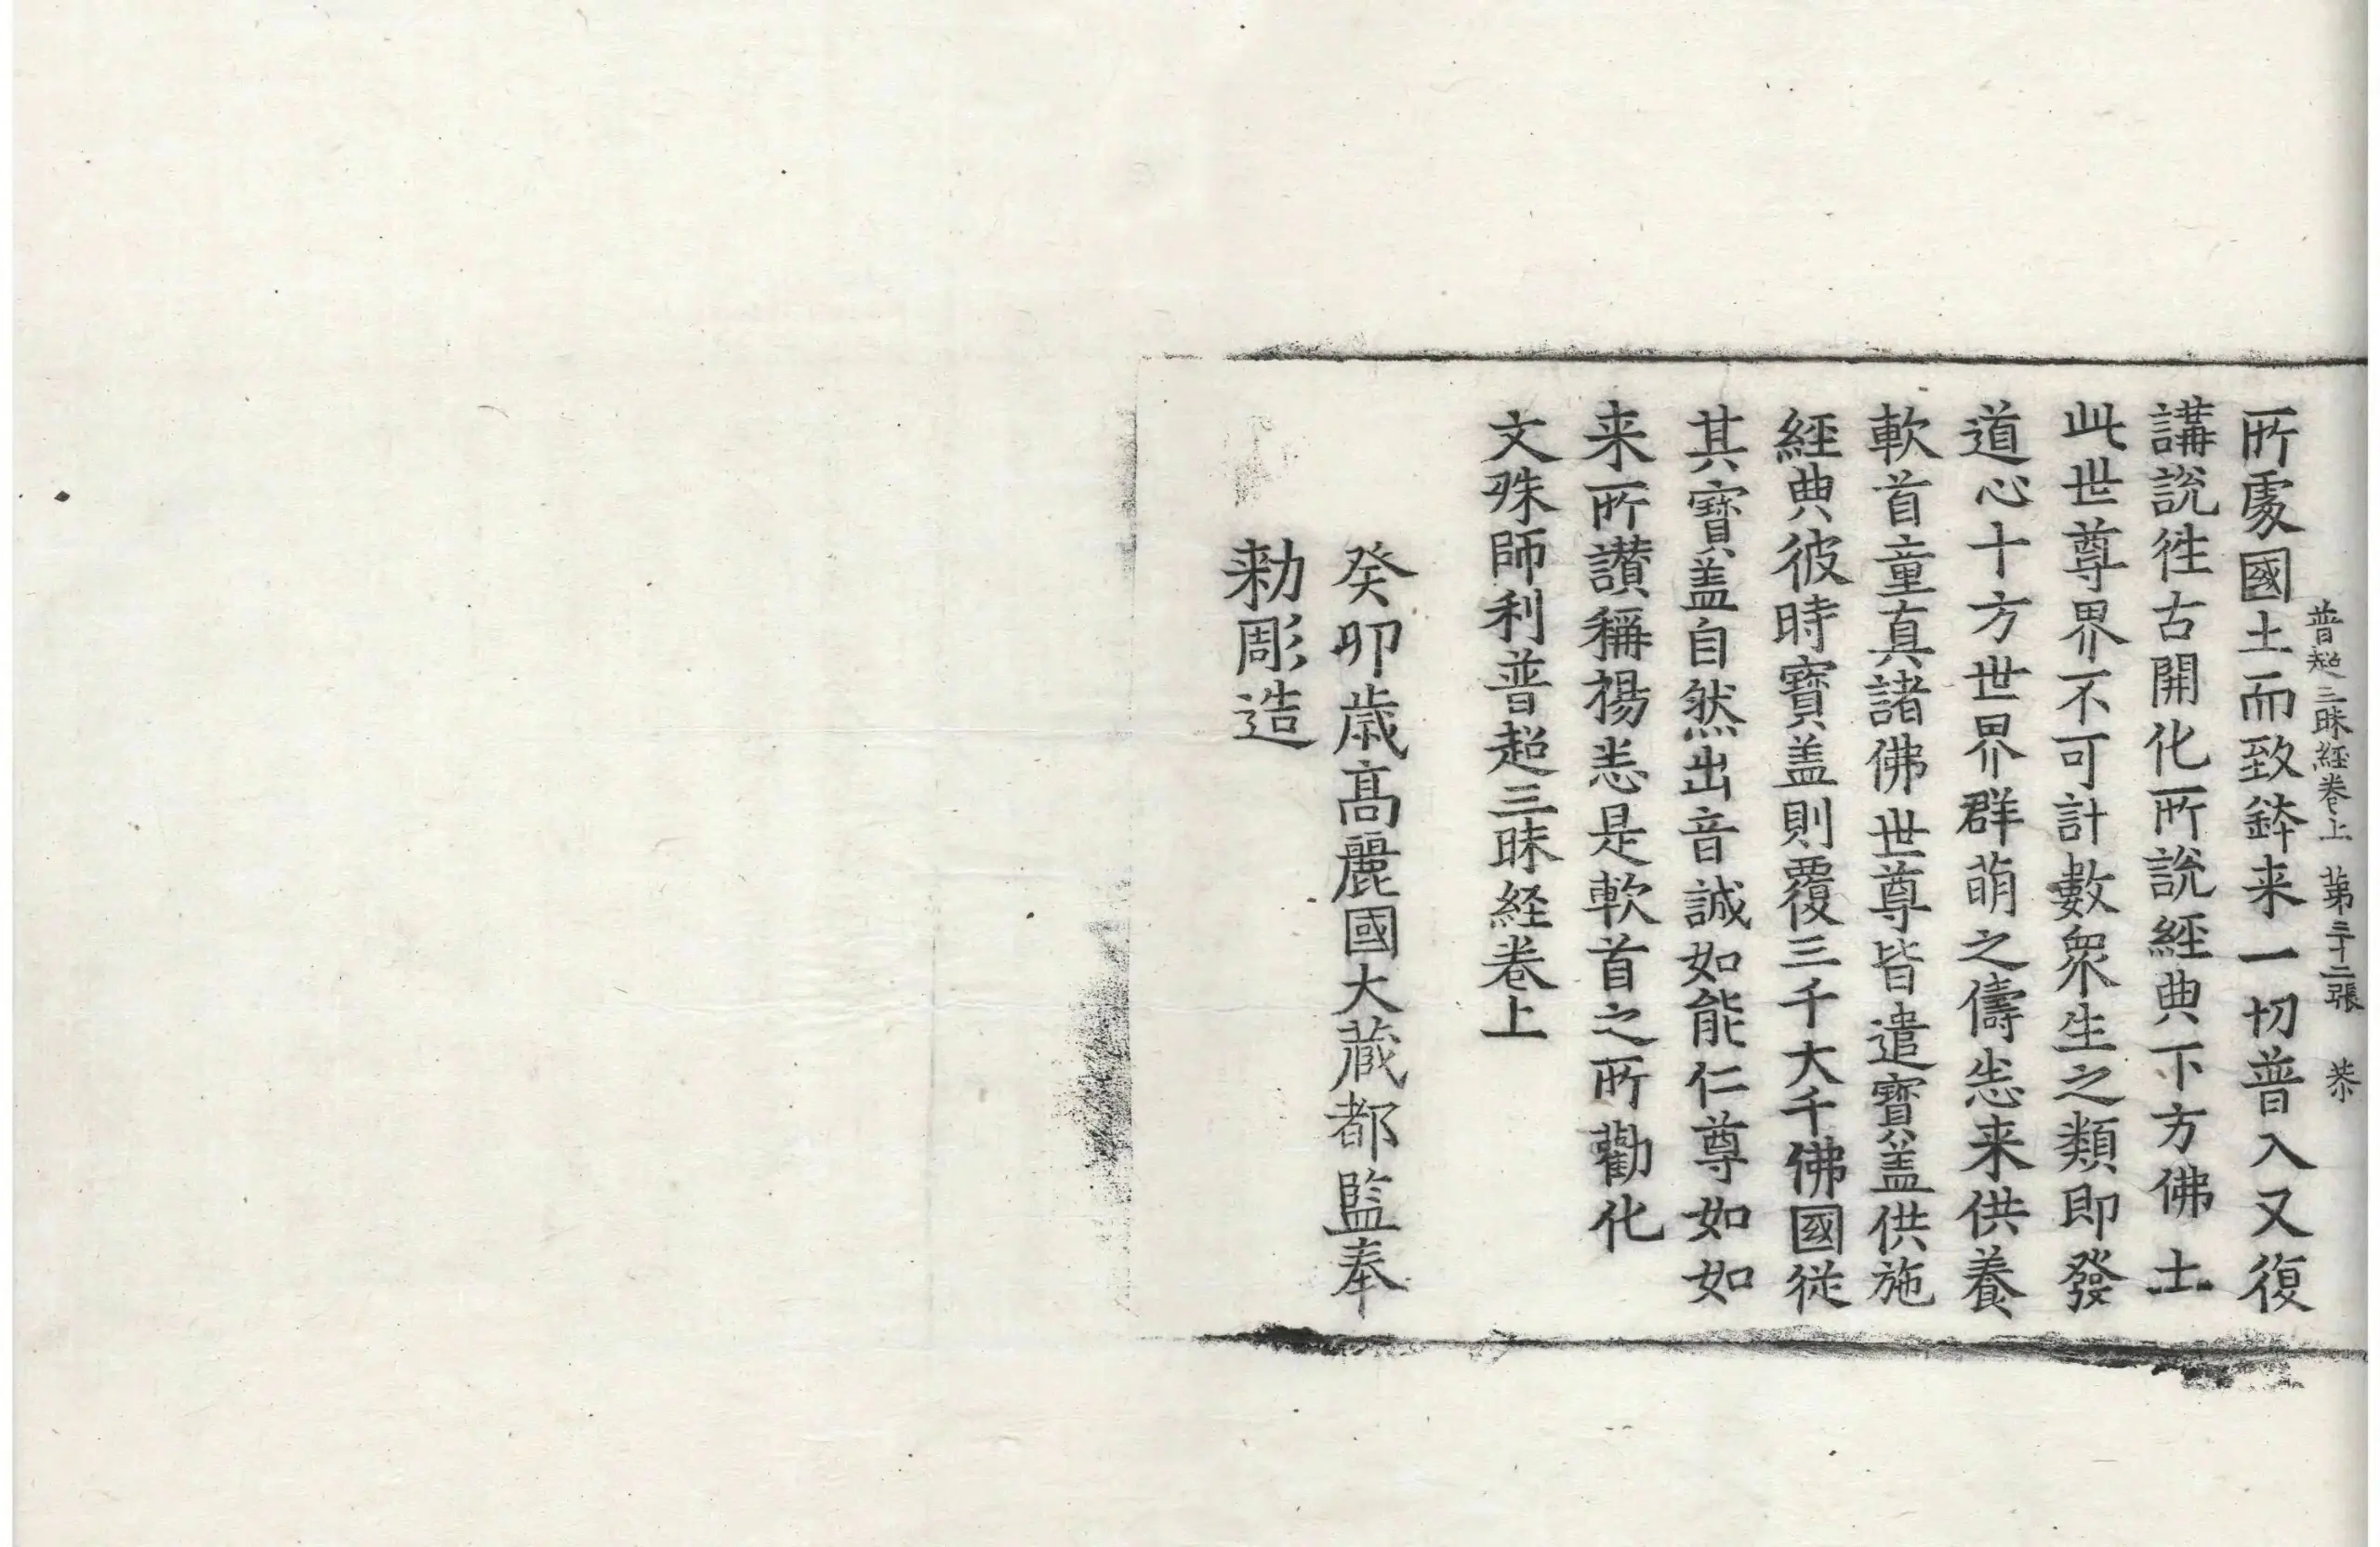 普超三昧經卷上 第三十二張 恭
所處國土而致鉢来一切普入又復
講說徃古開化所說經典下方佛土
此世尊界不可計數衆生之類即發
道心十方世界群萌之儔悉来供養
軟首童真諸佛世尊皆遣寶盖供施
經典彼時寶盖則覆三千大千佛國從
其寶盖自然出音誠如能仁尊如如
来所讃稱揚悉是軟首之所勸化
文殊師利普超三昧経卷上
癸卯歳髙麗國大蔵都監奉
勑彫造